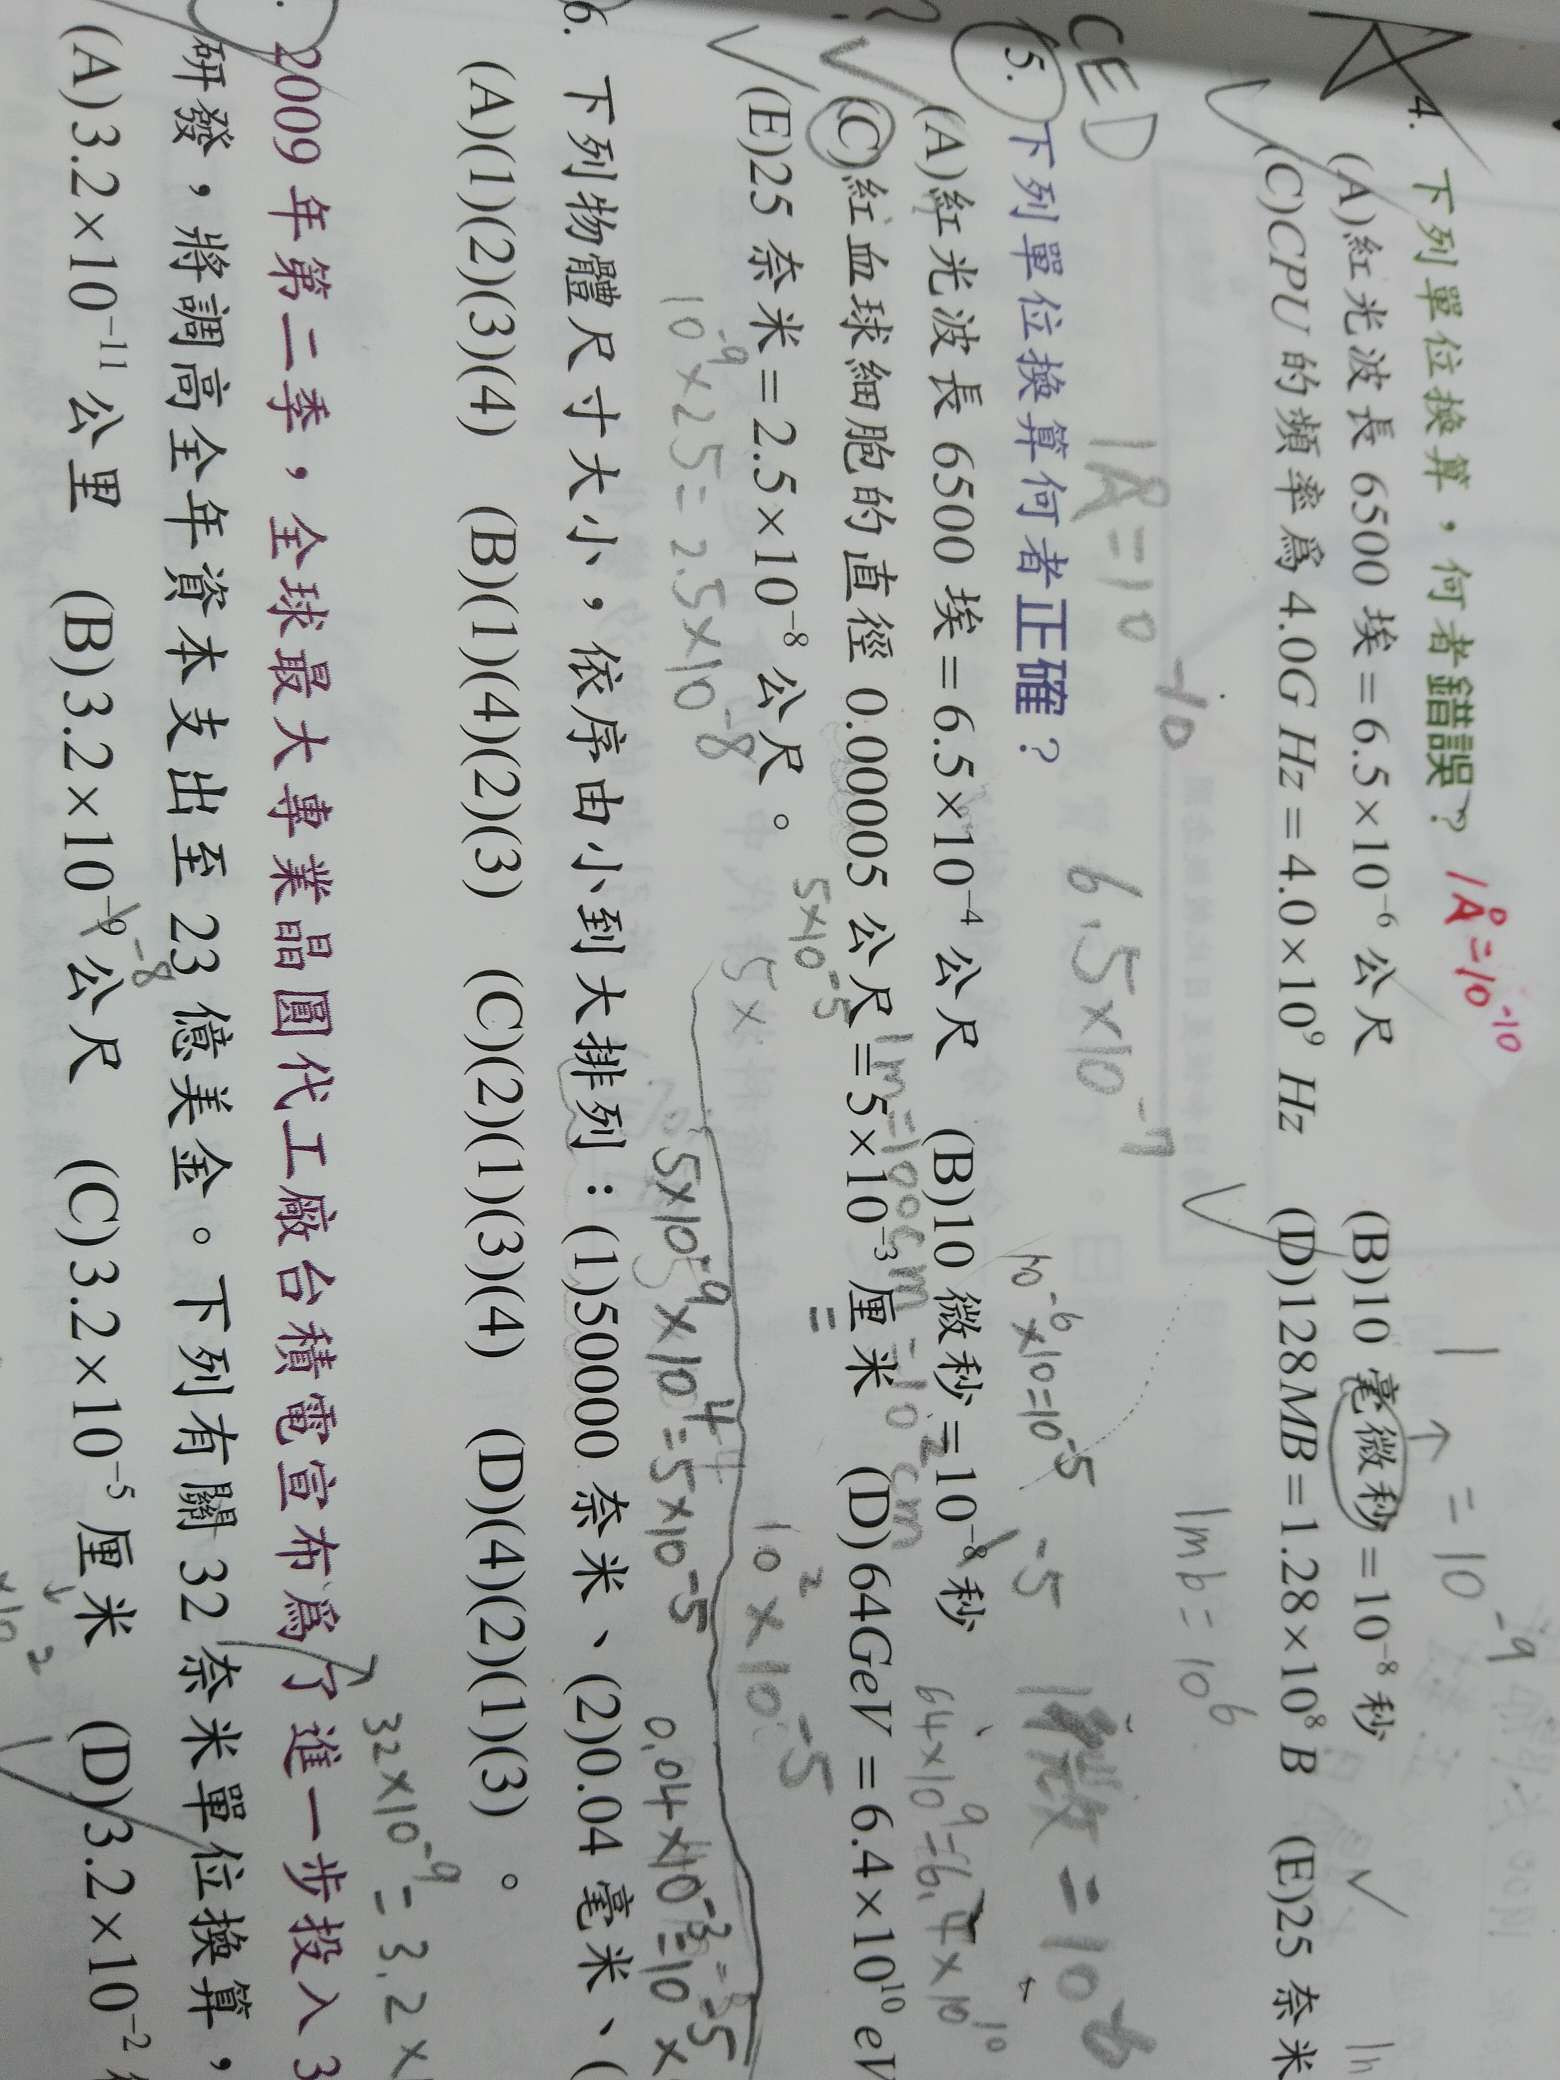 4. 下列單位換算，何者錯誤？ 1Å=10⁻¹⁰
1 = 10⁻⁹
(A)紅光波長 6500 埃＝6.5×10⁻⁶ 公尺 (B)10 毫微秒＝10⁻⁸ 秒
(C)CPU 的頻率爲 4.0G Hz＝4.0×10⁹ Hz (D)128MB＝1.28×10⁸ B (E)25 奈米
1mb=10⁶
CED 1Å=10⁻¹⁰ 6.5×10⁻⁷
10⁻⁶×10=10⁻⁵ -5 1微=10⁻⁶
5. 下列單位換算何者正確？
(A)紅光波長 6500 埃＝6.5×10⁻⁴ 公尺 (B)10 微秒＝10⁻⁸ 秒
1m=100cm=10²cm 64×10⁹=6.4×10¹⁰
(C)紅血球細胞的直徑 0.00005 公尺＝5×10⁻³ 厘米 (D)64GeV＝6.4×10¹⁰ eV
5×10⁻⁵
(E)25 奈米＝2.5×10⁻⁸ 公尺。
10²×10⁻⁵
10⁻⁹×25=2.5×10⁻⁸ 5×
5×10⁻⁹×10⁴=5×10⁻⁵ 0.04×10⁻³=
6. 下列物體尺寸大小，依序由小到大排列：(1)50000 奈米、(2)0.04 毫米、(
(A)(1)(2)(3)(4) (B)(1)(4)(2)(3) (C)(2)(1)(3)(4) (D)(4)(2)(1)(3) 。
32×10⁻⁹=3.2×
2009 年第二季，全球最大專業晶圓代工廠台積電宣布爲了進一步投入 3
研發，將調高全年資本支出至 23 億美金。下列有關 32 奈米單位換算，
-8
(A)3.2×10⁻¹¹ 公里 (B)3.2×10⁻⁹ 公尺 (C)3.2×10⁻⁵ 厘米 (D)3.2×10⁻²
×10²